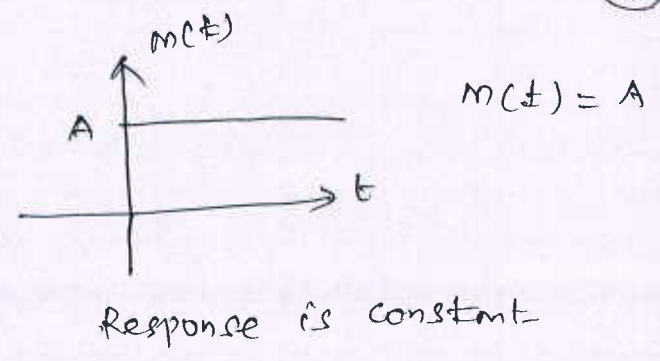 m(t)
m(t) = A
A
t
Response is constant